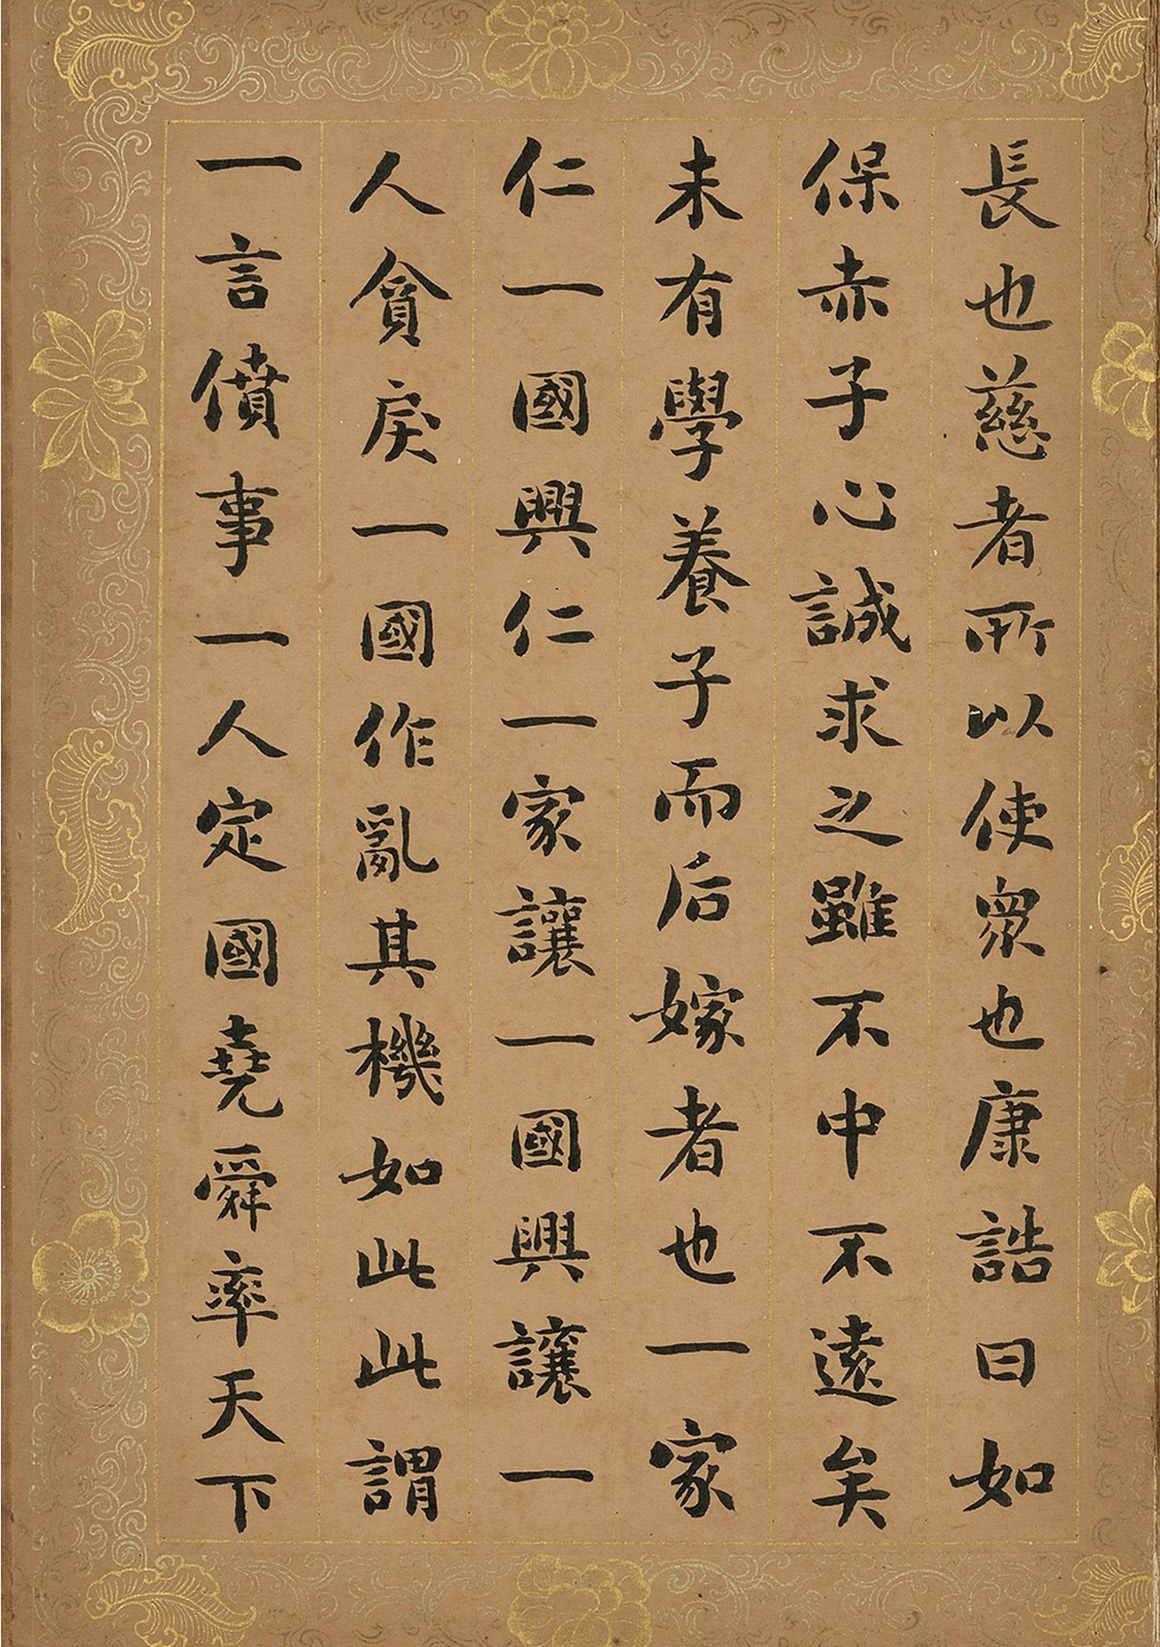 長也慈者所以使衆也康誥曰如
保赤子心誠求之雖不中不遠矣
未有學養子而后嫁者也一家
仁一國興仁一家讓一國興讓一
人貪戾一國作亂其機如此此謂
一言僨事一人定國堯舜率天下